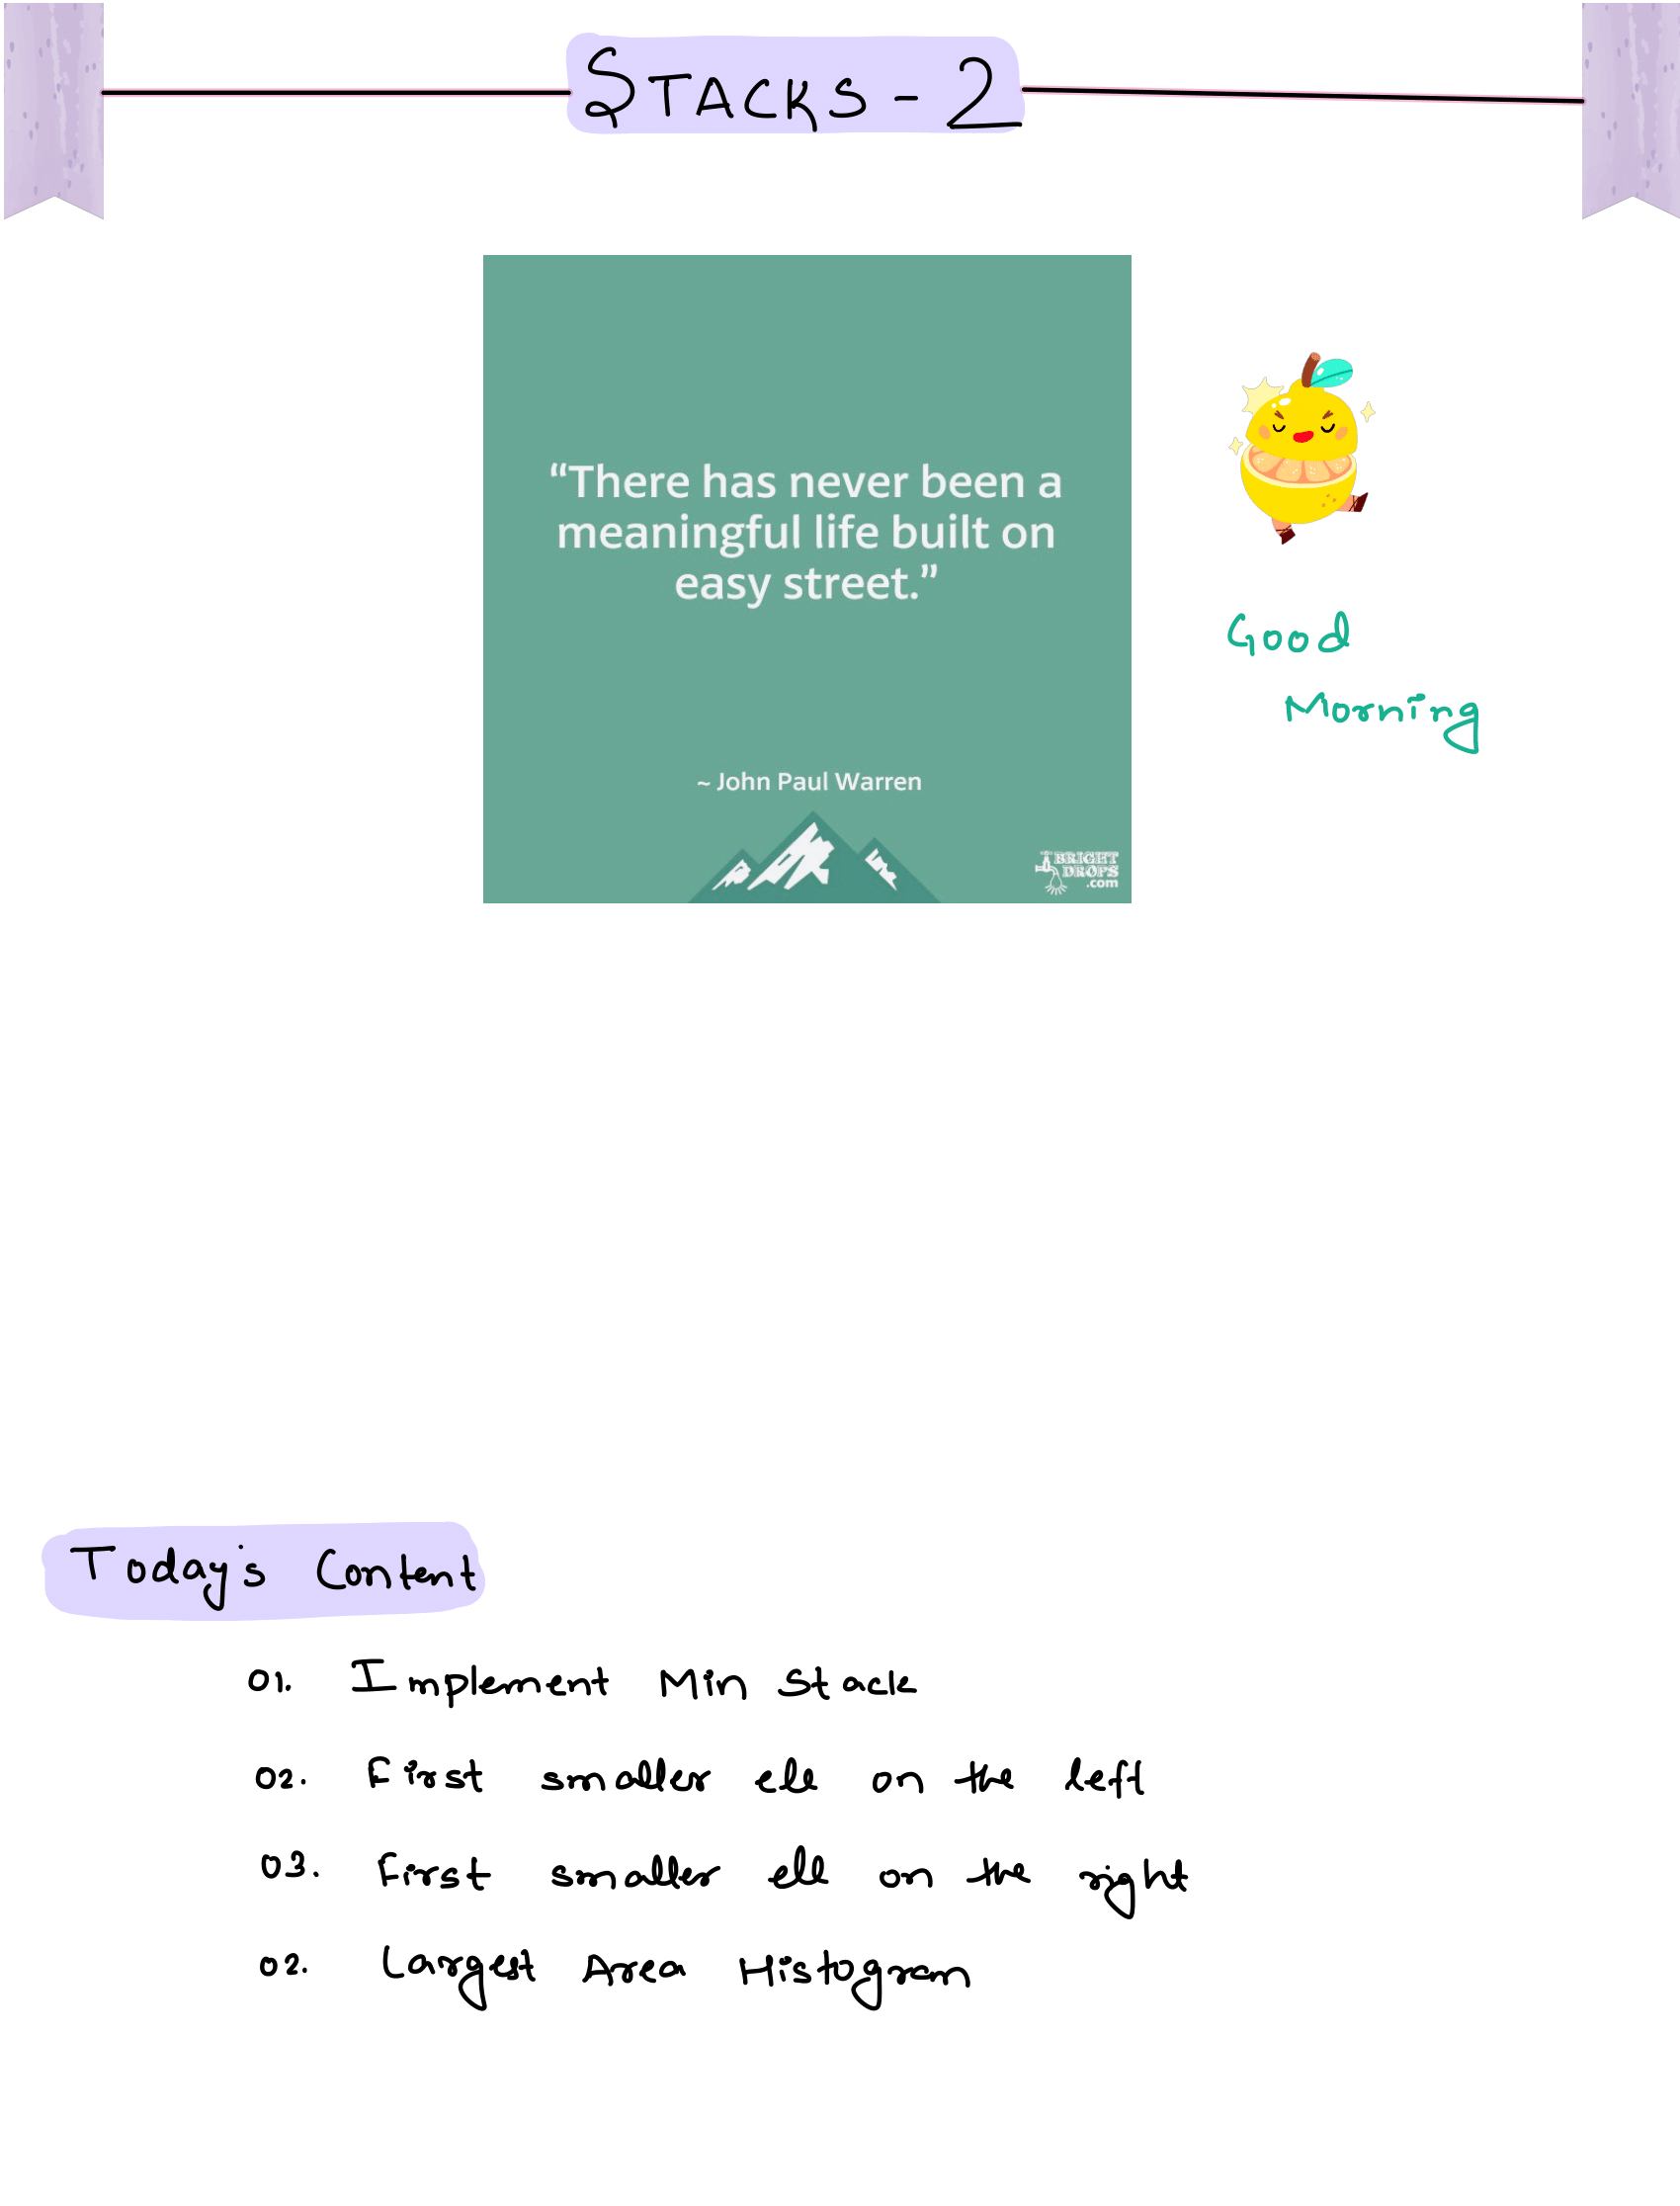 STACKS - 2
“There has never been a
meaningful life built on
easy street.”
~ John Paul Warren
BRIGHT
DROPS
.com
Good
Morning
Today's Content
01. Implement Min Stack
02. First smaller ele on the left
03. First smaller ele on the right
02. Largest Area Histogram